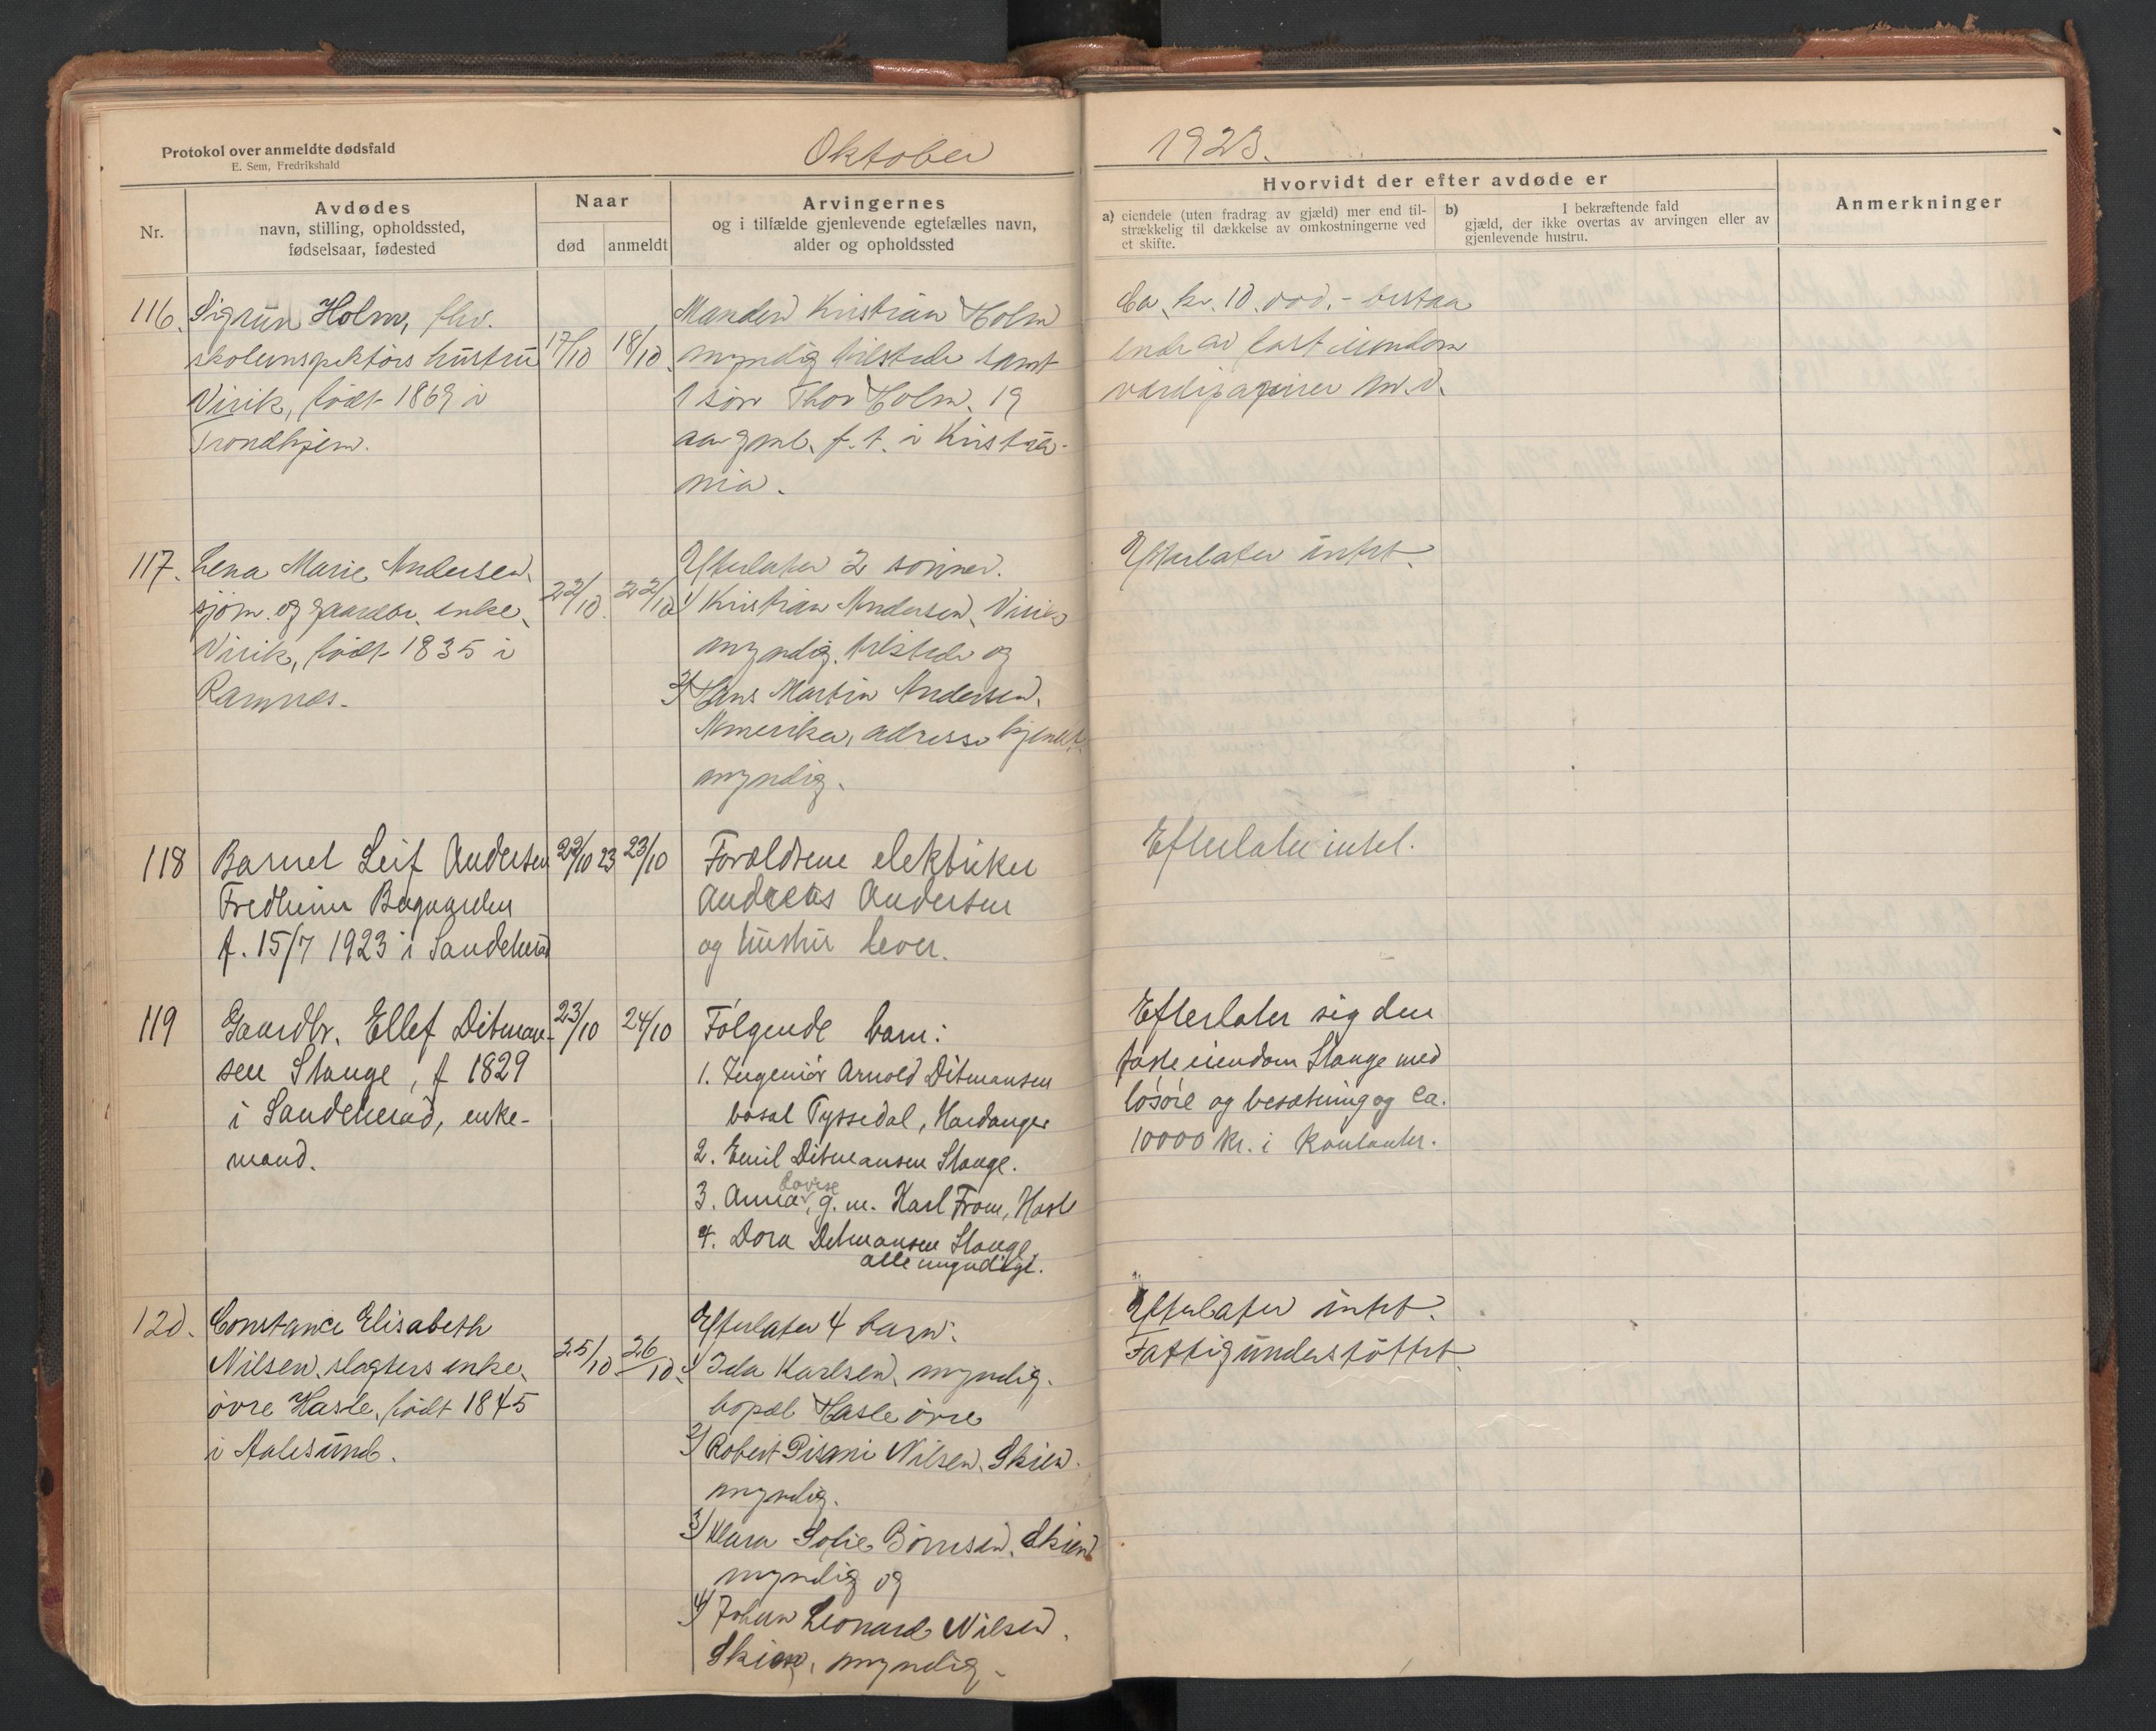 Protokol over anmeldte dødsfald
E. Sem, Fredrikshald
Oktober
1923.
Nr.
Avdødes
navn, stilling, opholdssted,
fødselsaar, fødested
Naar
død
anmeldt
Arvingernes
og i tilfælde gjenlevende egtefælles navn,
alder og opholdssted
Hvorvidt der efter avdøde er
a) eiendele (uten fradrag av gjæld) mer end til-
strækkelig til dækkelse av omkostningerne ved
et skifte.
b) I bekræftende fald
gjæld, der ikke overtas av arvingen eller av
gjenlevende hustru.
Anmerkninger
116. Sigrun Holm, fhv.
skoleinspektørs hustru
Virik, født 1869 i
Trondhjem.
17/10
18/10.
Manden Kristian Holm
myndig tilstede samt
1 søn Thor Holm, 19
aar gml. f. t. i Kristia-
nia.
Ca. kr. 10.000.- bestaa
ende av fast eiendom
værdipapirer m.v.
117. Lena Marie Andersen,
sjøm. og gaardbr. enke,
Virik, født 1835 i
Ramnes.
22/10.
22/10
Efterlater 2 sønner.
1) Kristian Andersen, Virik
myndig, tilstede og
2) Hans Martin Andersen,
Amerika, adresse kjendt,
myndig.
Efterlater intet.
118 Barnet Leif Andersen
Fredheim Bugaarden
f. 15/7 1923 i Sandeherad
22/10 23
23/10
Forældrene elektriker
Andreas Andersen
og hustru lever.
Efterlater intet.
119 Gaardbr. Ellef Ditman-
sen Stange, f 1829
i Sandeherad, enke-
mand.
23/10
24/10
Følgende barn:
1. Ingeniør Arnold Ditmansen
bosat Tyssedal, Hardanger
2. Emil Ditmansen Stange.
3. Anna Lovise, g. m. Karl From, Hasle
4. Dora Ditmansen Stange,
alle myndige.
Efterlater sig den
faste eiendom Stange med
løsøre og besætning og ca.
10000 kr. i kontanter.
120. Constance Elisabeth
Nilsen, slagters enke,
øvre Hasle, født 1845
i Aalesund.
25/10
26/10.
Efterlater 4 barn:
1) Ida Karlsen, myndig.
bopæl Hasle øvre
2) Robert Nilsen, Skien.
myndig.
3) Klara Sofie Børresen, Skien
myndig og
4) Johan Leonard Nilsen,
Skien, myndig.
Efterlater intet.
Fattigunderstøttet.